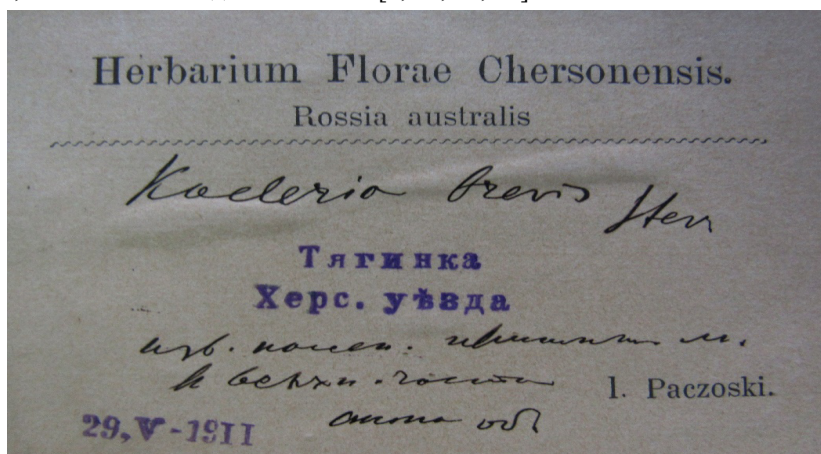 Herbarium Florae Chersonensis.
Rossia australis
Koeleria brevis Stev
Тягинка
Херс. уѣзда
изв.
в верхн. части l. Paczoski.
29, V-1911 склона